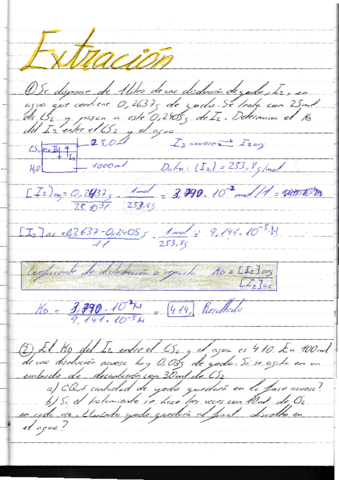 Extración
① Se dispone de 1 litro de una disolución de yodo, I₂, en
agua que contiene 0,2637g de yodo. Se trata con 25ml
de CS₂ y pasan a este 0,2405g de I₂. Determina el KD
del I₂ entre el CS₂ y el agua.
25,0ml I₂ acuoso ⇌ I₂ org
CS₂
Dato: (I₂) = 253,8g/mol
H₂O 1000ml
[I₂]org = 0,2437g / 25·10⁻³l · 1mol / 253,8g = 3,790·10⁻² mol/l =
[I₂]ac = 0,2637-0,2405g / 1l · 1mol / 253,8g = 9,141·10⁻⁵ M
Coeficiente de distribución o reparto KD = [I₂]org / [I₂]ac
KD = 3,790·10⁻²M / 9,141·10⁻⁵M = 414, Resultado
② El KD del I₂ entre el CS₂ y el agua es 410. En 100ml
de una disolución acuosa hay 0,03g de yodo. Si se agita en un
embudo de decantación con 30ml de CS₂
a) ¿Qué cantidad de yodo quedará en la fase acuosa?
b) Si el tratamiento se hace tres veces con 10ml de
en cada vez. ¿Cuánto yodo quedará al final disuelto en
el agua?